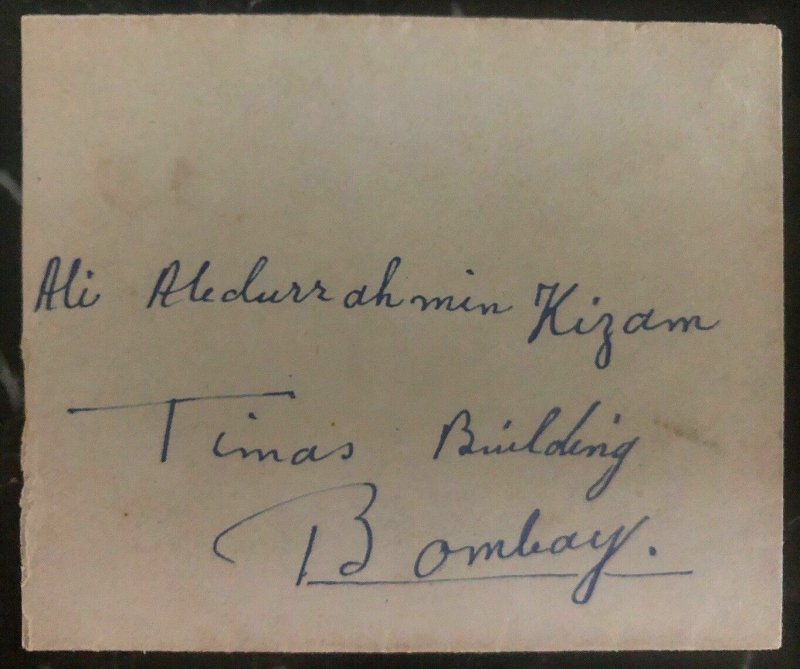 Ali Abdurrahmin Kizam
Timas Building
Bombay.